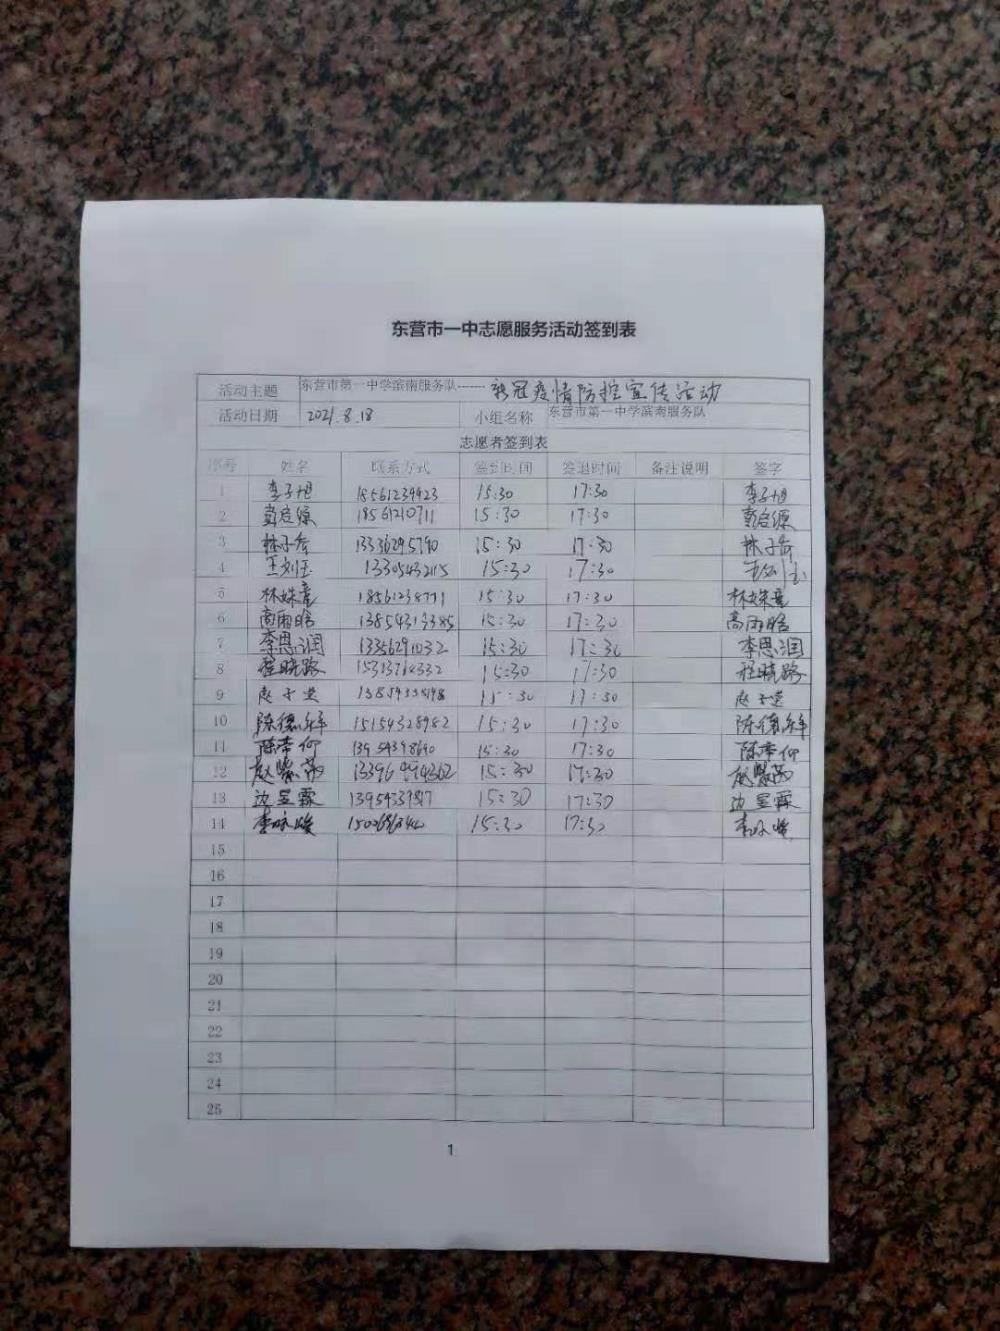 东营市一中志愿服务活动签到表
活动主题 东营市第一中学滨南服务队------新冠疫情防控宣传活动
活动日期 2021.8.18 小组名称 东营市第一中学滨南服务队
志愿者签到表
序号 姓名 联系方式 签到时间 签退时间 备注说明 签字
1 李子旭 18561239423 15:30 17:30 李子旭
2 彭启源 18561210711 15:30 17:30 彭启源
3 林子乔 13336295790 15:30 17:30 林子乔
4 13305432115 15:30 17:30
5 林姝童 18561238771 15:30 17:30 林姝童
6 高雨晗 15:30 17:30 高雨晗
7 李思润 13356291032 15:30 17:30 李思润
8 程晓路 15:30 17:30 程晓路
9 赵子 15:30 17:30 赵子
10 陈德祥 15154328982 15:30 17:30 陈德祥
11 陈帝仰 13954398690 15:30 17:30 陈帝仰
12 赵紫 15:30 17:30 赵紫
13 边昱霖 15:30 17:30 边昱霖
14 李咏峻 15:30 17:30 李咏峻
15
16
17
18
19
20
21
22
23
24
25
1